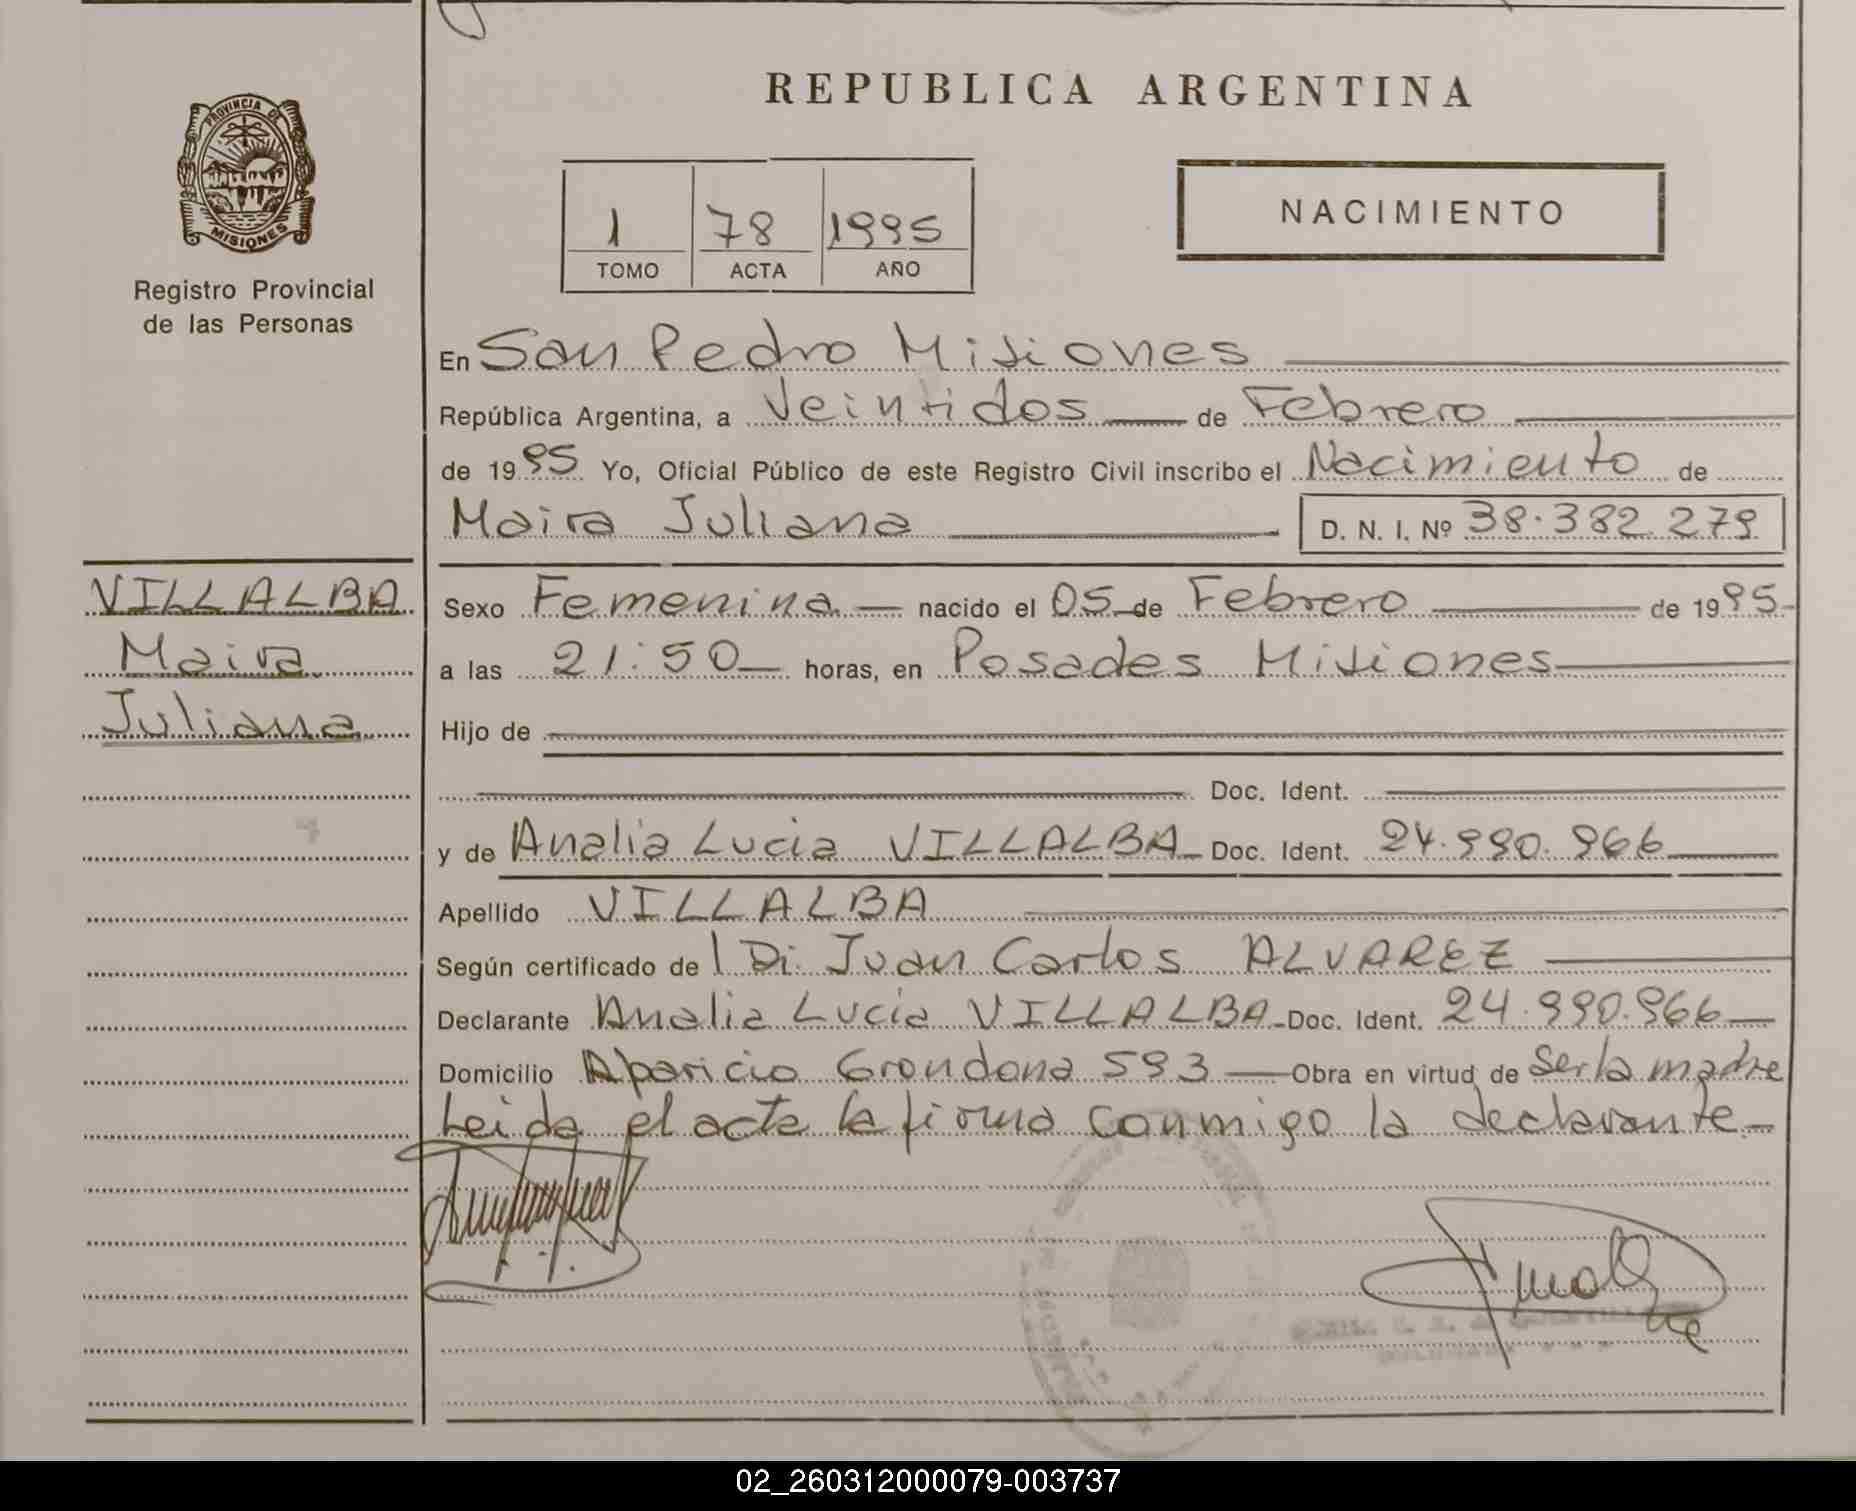 REPUBLICA ARGENTINA
PROVINCIA DE
MISIONES
Registro Provincial
de las Personas
1 78 1995
TOMO ACTA AÑO
NACIMIENTO
En San Pedro Misiones
República Argentina, a Veintidos de Febrero
de 1995 Yo, Oficial Público de este Registro Civil inscribo el Nacimiento de
Maira Juliana D. N. I. Nº 38.382.279
VILLALBA
Maira
Juliana
Sexo Femenina nacido el 05 de Febrero de 1995
a las 21:50 horas, en Posadas Misiones
Hijo de
Doc. Ident.
y de Analia Lucia VILLALBA Doc. Ident. 24.990.966
Apellido VILLALBA
Según certificado de Juan Carlos ALVAREZ
Declarante Analia Lucia VILLALBA Doc. Ident. 24.990.966
Domicilio Aparicio Grondona 593 Obra en virtud de Ser la madre
Leida el acta la firma conmigo la declarante
02_260312000079-003737